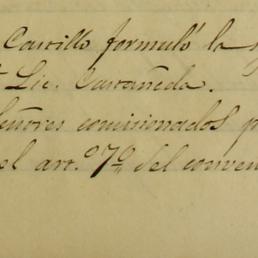 Carrillo formuló la
Lic. Castañeda.
Señores comisionados p
el art.º 7º del conven